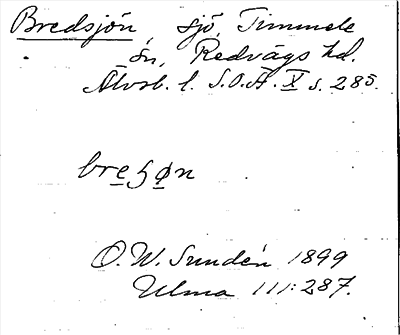 Bredsjön, sjö, Timmele
sn, Redvägs hd.
Älvsb. l. S.O.Ä. X s. 285.
bresøn
O. W. Sundén 1899
Ulma 111:287.